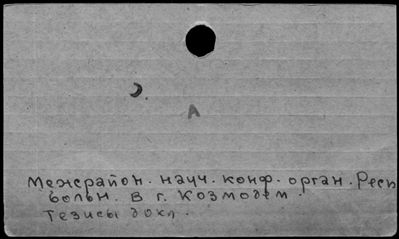 А
Межрайон. науч. конф. орган. Респ
больн. в г. Козмодем.
Тезисы докл.